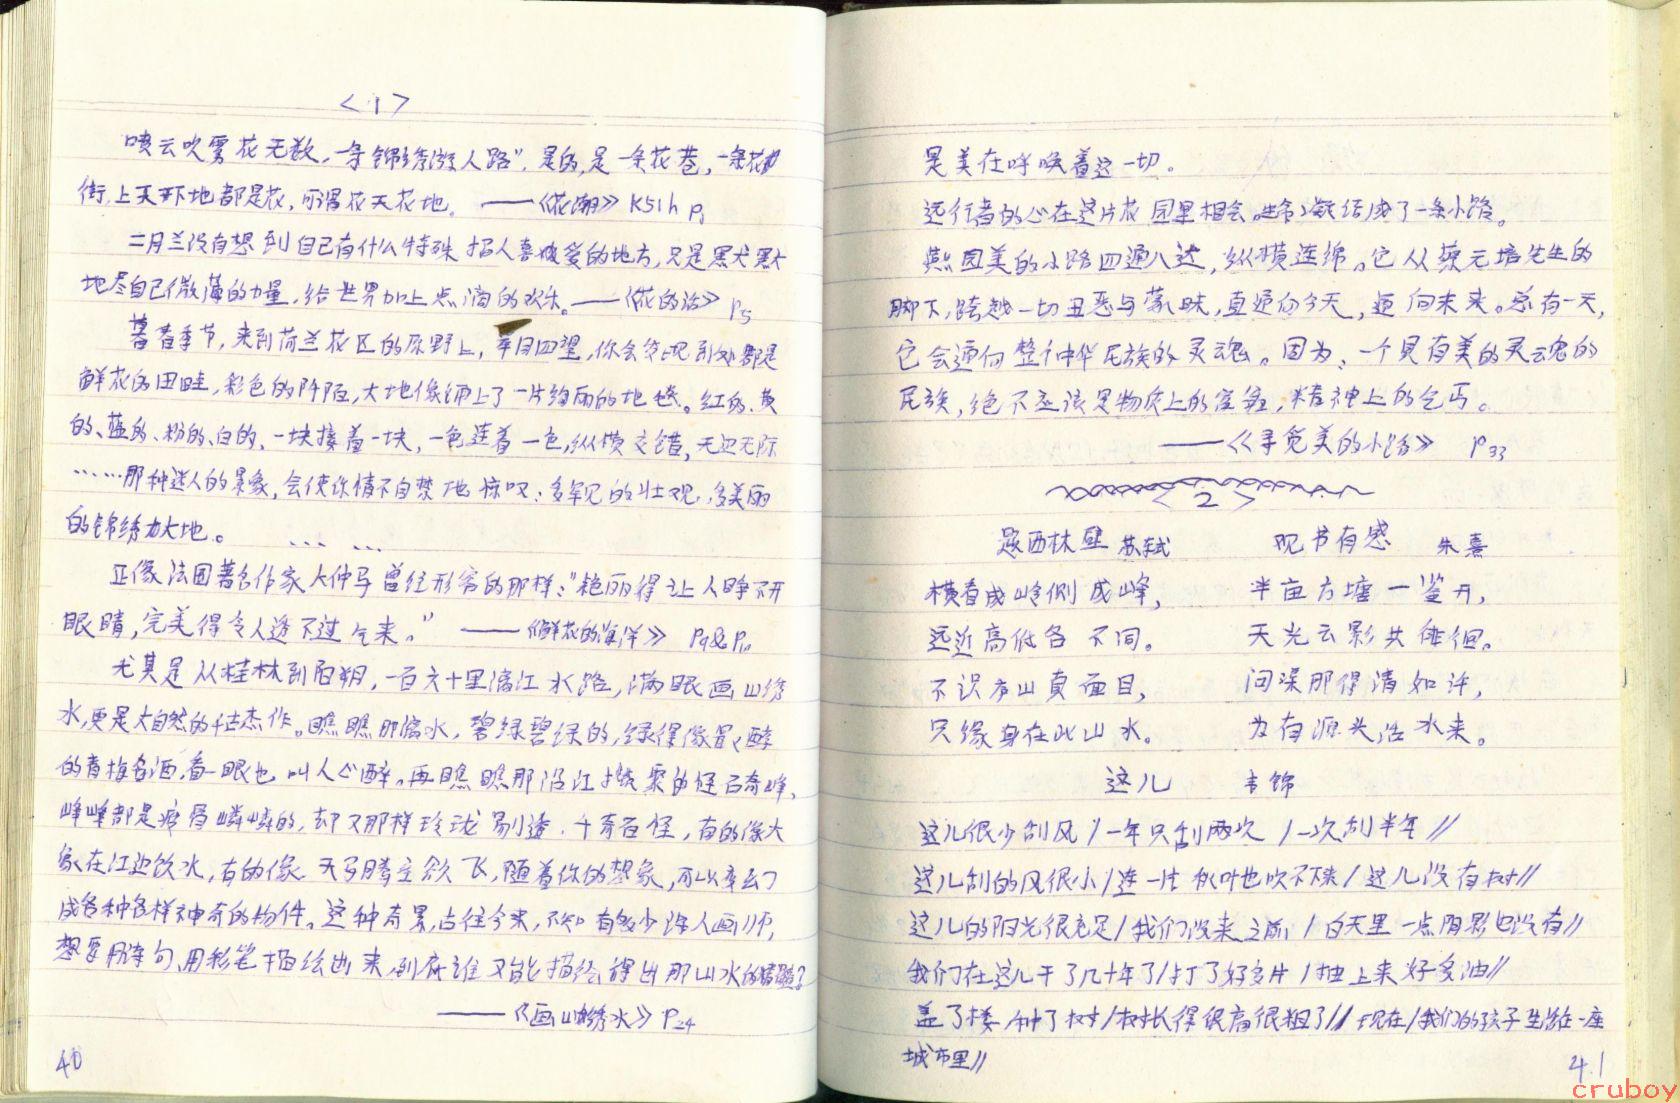 <1>
喷云吹雾花无数，一条锦绣游人路”，是的，是一条花巷，一条花的
街，上天下地都是花，可谓花天花地。——《花潮》K51h P1
二月兰没有想到自己有什么特殊招人喜被爱的地方，只是默默
地尽自己微薄的力量，给世界加上点滴的欢乐。——《花的话》P5
暮春季节，来到荷兰花区的原野上，举目四望，你会发现到处都是
鲜花的田畦，彩色的阡陌，大地像铺上了一片绚丽的地毯。红的、黄
的、蓝的、粉的、白的、一块接着一块，一色连着一色，纵横交错，无边无际
……那种迷人的景象，会使你情不自禁地惊叹：多罕见的壮观，多美丽
的锦绣大地。 … …
正像法国著名作家大仲马曾经形容的那样：“艳丽得让人睁不开
眼睛，完美得令人透不过气来。” ——《鲜花的海洋》 P9&P10
尤其是从桂林到阳朔，一百六十里漓江水路，满眼画山绣
水，更是大自然的千古杰作。瞧瞧那漓水，碧绿碧绿的，绿得像最醇
的青梅名酒，看一眼也叫人心醉。再瞧瞧那沿江攒聚的怪石奇峰，
峰峰都是瘦骨嶙嶙的，却又那样玲珑剔透，千奇百怪，有的像大
象在江边饮水，有的像天马腾空欲飞，随着你的想象，可以变幻
成各种各样神奇的物件。这种奇景，古往今来，不知有多少诗人画师，
想要用诗句、用彩笔描绘出来，到底谁又能描绘得出那山水的精髓？
——《画山绣水》P24
40
是美在呼唤着这一切。
远行者的心在这片花园里相会，生命凝结成了一条小路。
燕园美的小路四通八达，纵横连绵。它从蔡元培先生的
脚下，跨越一切丑恶与蒙昧，直通向今天，通向未来。总有一天，
它会通向整个中华民族的灵魂。因为，一个具有美的灵魂的
民族，绝不应该是物质上的富翁，精神上的乞丐。
——《寻觅美的小路》 P33
<2>
题西林壁 苏轼 观书有感 朱熹
横看成岭侧成峰， 半亩方塘一鉴开，
远近高低各不同。 天光云影共徘徊。
不识庐山真面目， 问渠那得清如许，
只缘身在此山水。 为有源头活水来。
这儿 韦锦
这儿很少刮风/一年只刮两次/一次刮半年//
这儿刮的风很小/连一片树叶也吹不来/这儿没有树//
这儿的阳光很充足/我们没来之前/白天里一点阴影也没有//
我们在这儿干了几十年了/打了好多井/抽上来好多油//
盖了楼/种了树/树长得很高很粗了//现在/我们的孩子生活在一座
城市里//
41
cruboy